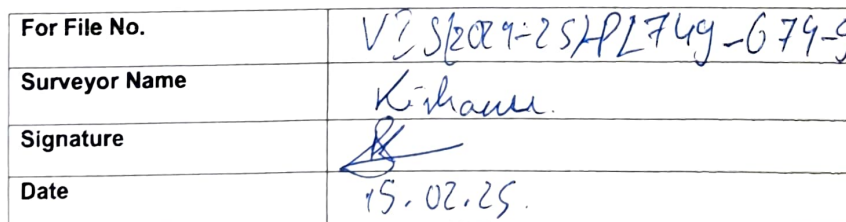 For File No. VIS(2024-25)-PL749-674-9
Surveyor Name Kishanu.
Signature
Date 15.02.25.